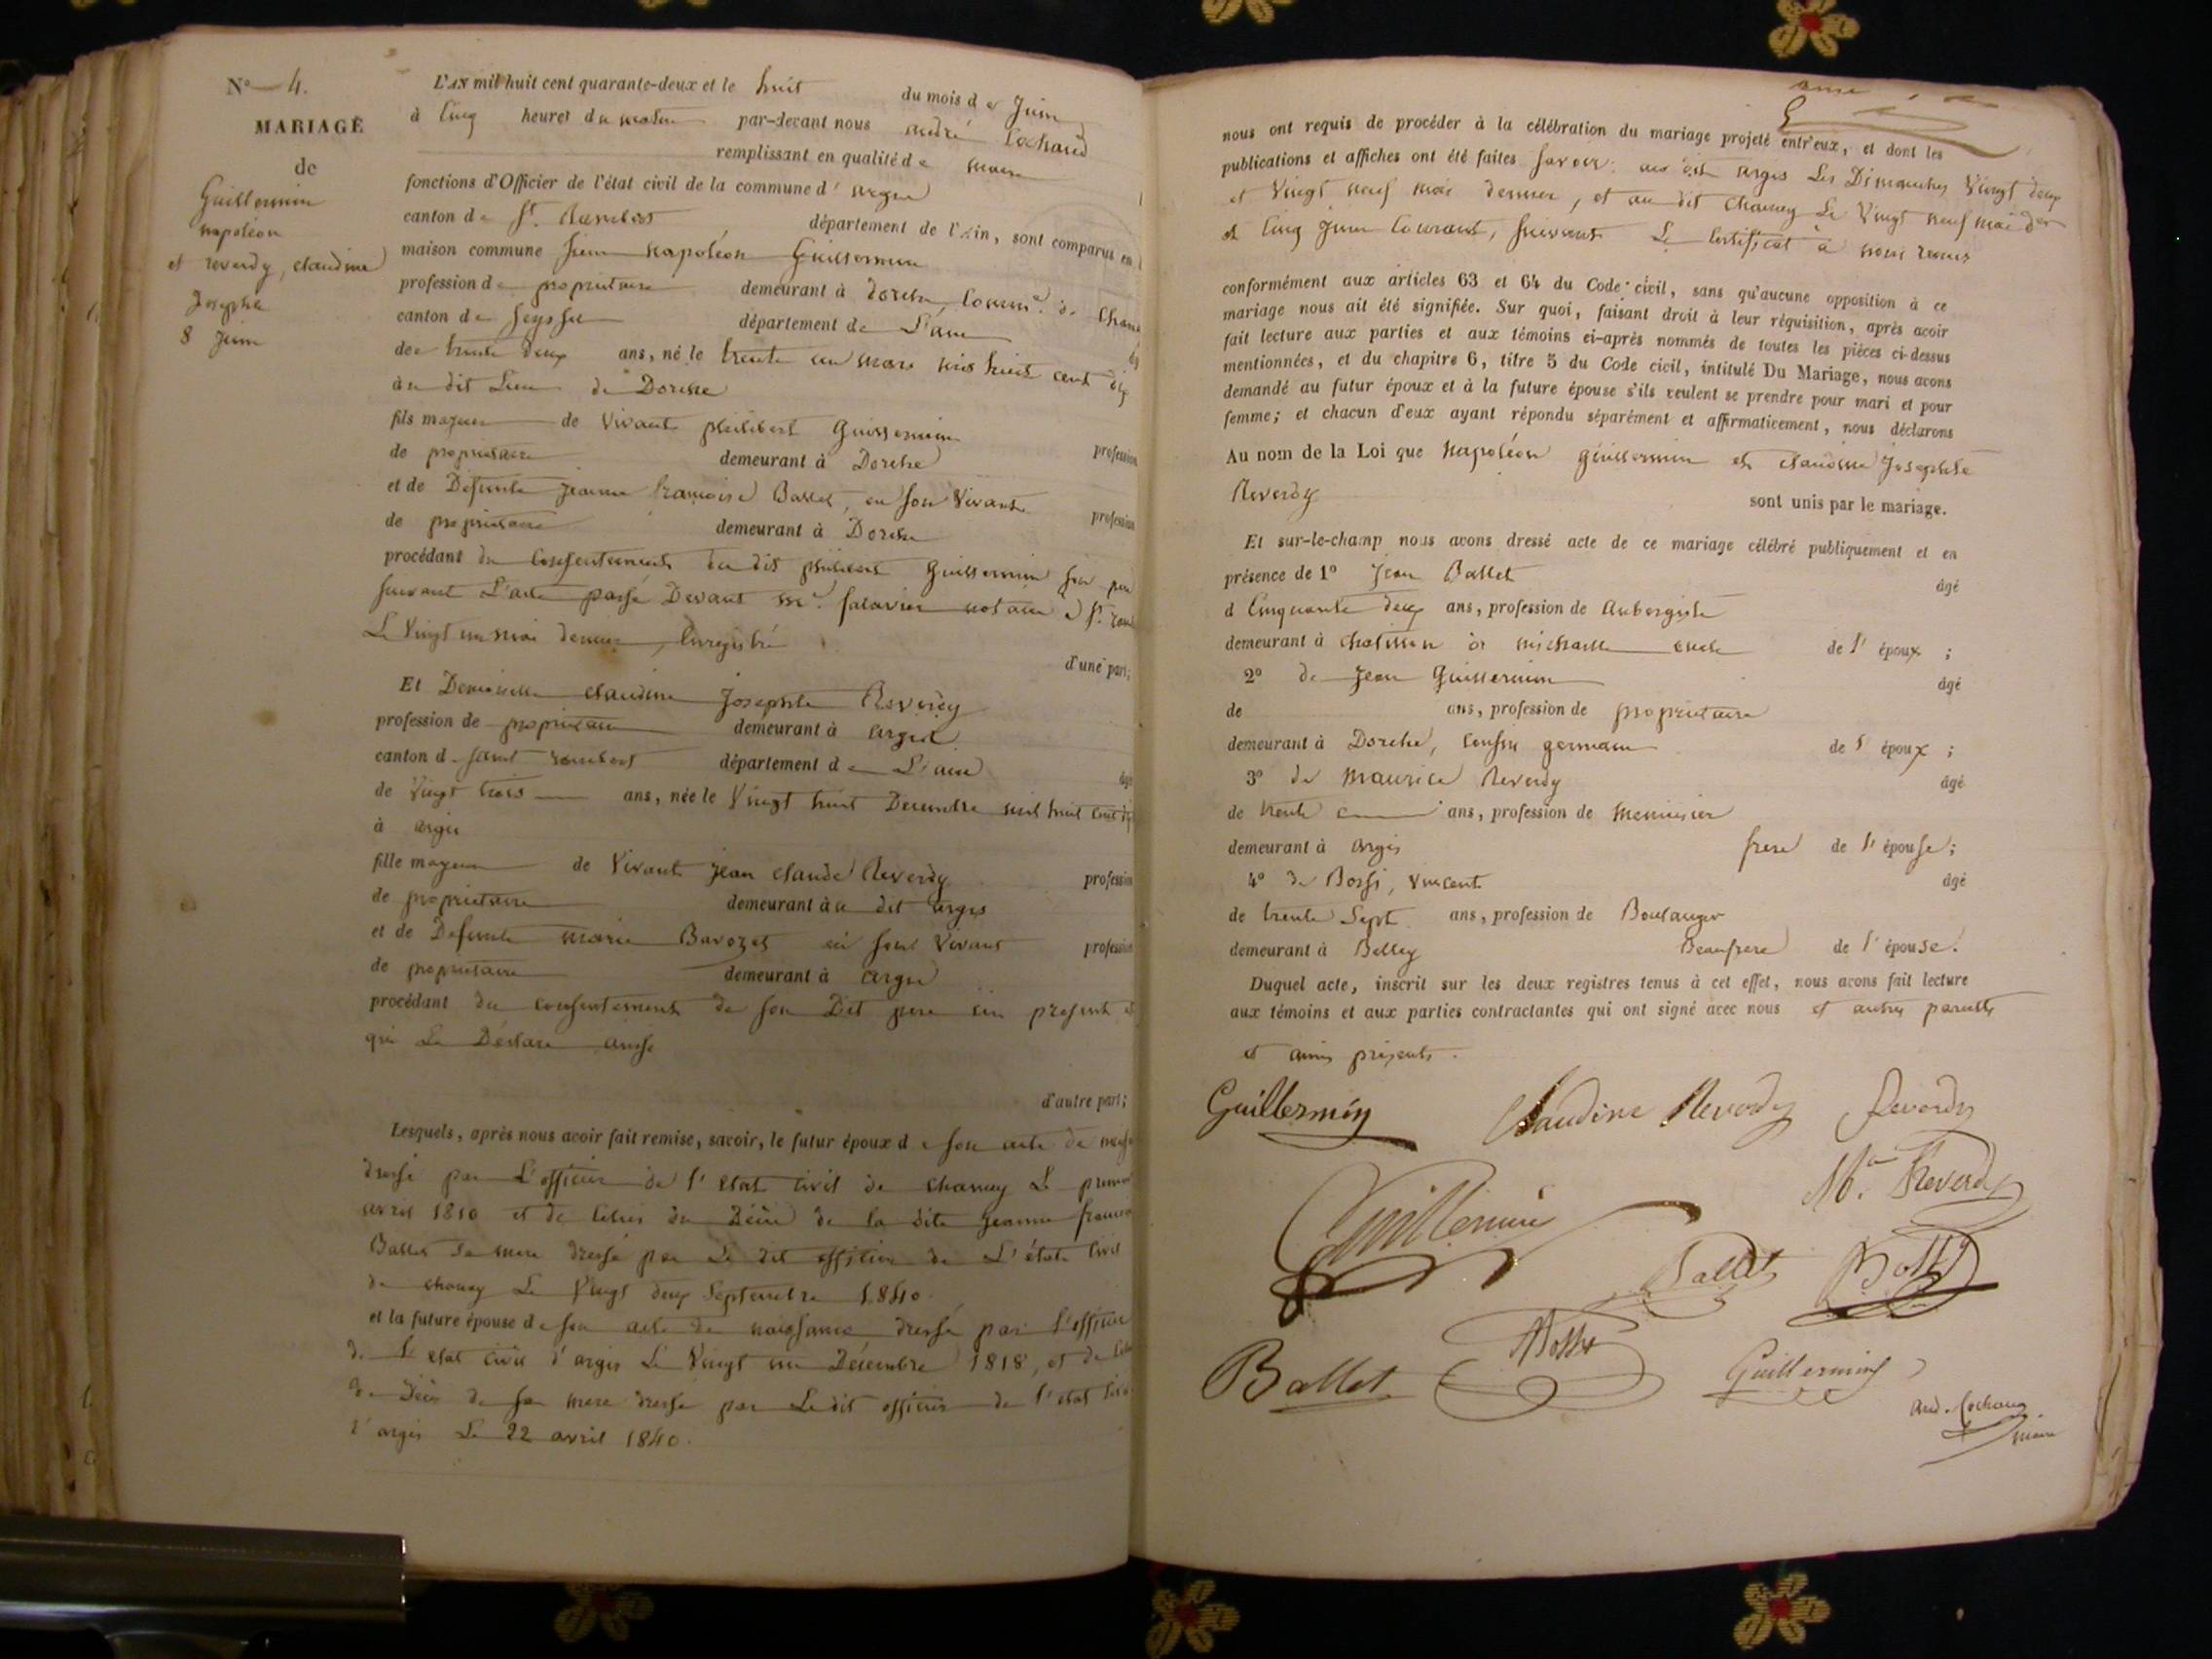 N° 4.
MARIAGE
de
Guillermin
napoléon
et reverdy, claudine
Josephte
8 Juin
L'AN mil huit cent quarante-deux et le huit du mois de Juin
à cinq heures du matin par-devant nous andré Cochand
remplissant en qualité de maire
fonctions d'Officier de l'état civil de la commune d' argis
canton de St. Rambert département de l'Ain, sont comparus en
maison commune sieur napoléon Guillermin
profession de propriétaire demeurant à dorche, Comm. de Chanay
canton de Seyssel département de L'ain
de trente deux ans, né le trente un mars mil huit cent dix
à u dit Lieu de Dorche
fils majeur de Vivant philibert Guillermin profession
de propriétaire demeurant à Dorche
et de Defunte jeanne francoise Ballet, en son Vivant profession
de propriétaire demeurant à Dorche
procédant du Consentement du dit philibert Guillermin son pere
suivant L'acte passé Devant me. notaire à St.
Le Vingt un mai dernier, Enregistré
d'une part;
Et Demoiselle claudine Josephte Reverdy
profession de propriétaire demeurant à argis
canton d saint rambert département de L'ain âgée
de Vingt trois ans, née le Vingt huit Decembre mil huit cent dix
à argis
fille majeure de Vivant jean claude Reverdy profession
de propriétaire demeurant à u dit argis
et de Defunte marie Bavozet en son Vivant profession
de propriétaire demeurant à argis
procédant du consentement de son Dit pere ici present et
qui Le Déclare ainsi
d'autre part;
Lesquels, après nous avoir fait remise, savoir, le futur époux de son acte de
dressé par L'officier de l'etat civil de chanay Le premier
avril 1810 et de celui du Décès de la dite jeanne
Ballet sa mere dressé par Le dit officier de L'état civil
de chanay Le Vingt deux Septembre 1840
et la future épouse de son acte de naissance dressé par l'officier
de L'etat civil d'argis Le Vingt un Décembre 1818, et de celui
de Décès de sa mere dressé par Le dit officier de l'etat civil
d'argis Le 22 avril 1840.
nous ont requis de procéder à la célébration du mariage projeté entr'eux, et dont les
publications et affiches ont été faites savoir: au dit argis Les Dimanches Vingt deux
et Vingt neuf mai dernier, et au dit chanay Le Vingt neuf mai der
et Cinq Juin Courant, suivant Le Certificat à nous remis
conformément aux articles 63 et 64 du Code civil, sans qu'aucune opposition à ce
mariage nous ait été signifiée. Sur quoi, faisant droit à leur réquisition, après avoir
fait lecture aux parties et aux témoins ci-après nommés de toutes les pièces ci-dessus
mentionnées, et du chapitre 6, titre 5 du Code civil, intitulé Du Mariage, nous avons
demandé au futur époux et à la future épouse s'ils veulent se prendre pour mari et pour
femme; et chacun d'eux ayant répondu séparément et affirmativement, nous déclarons
Au nom de la Loi que Napoléon Guillermin et claudine Josephte
Reverdy sont unis par le mariage.
Et sur-le-champ nous avons dressé acte de ce mariage célébré publiquement et en
présence de 1° Jean Ballet âgé
d Cinquante deux ans, profession de Aubergiste
demeurant à chatillon de michaille oncle de l' époux;
2° de Jean Guillermin âgé
de ans, profession de propriétaire
demeurant à Dorche, Cousin germain de l' époux;
3° de Maurice Reverdy âgé
de trente ans, profession de menuisier
demeurant à argis frere de l' épouse;
4° de Bossi, Vincent âgé
de trente Sept ans, profession de Boulanger
demeurant à Belley Beaufrere de l' épouse.
Duquel acte, inscrit sur les deux registres tenus à cet effet, nous avons fait lecture
aux témoins et aux parties contractantes qui ont signé avec nous et autres parents
et amis présents.
Guillermin Claudine Reverdy Reverdy
Guillermin Mce. Reverdy
Ballet
Ballet Guillermin
And. Cochand
maire